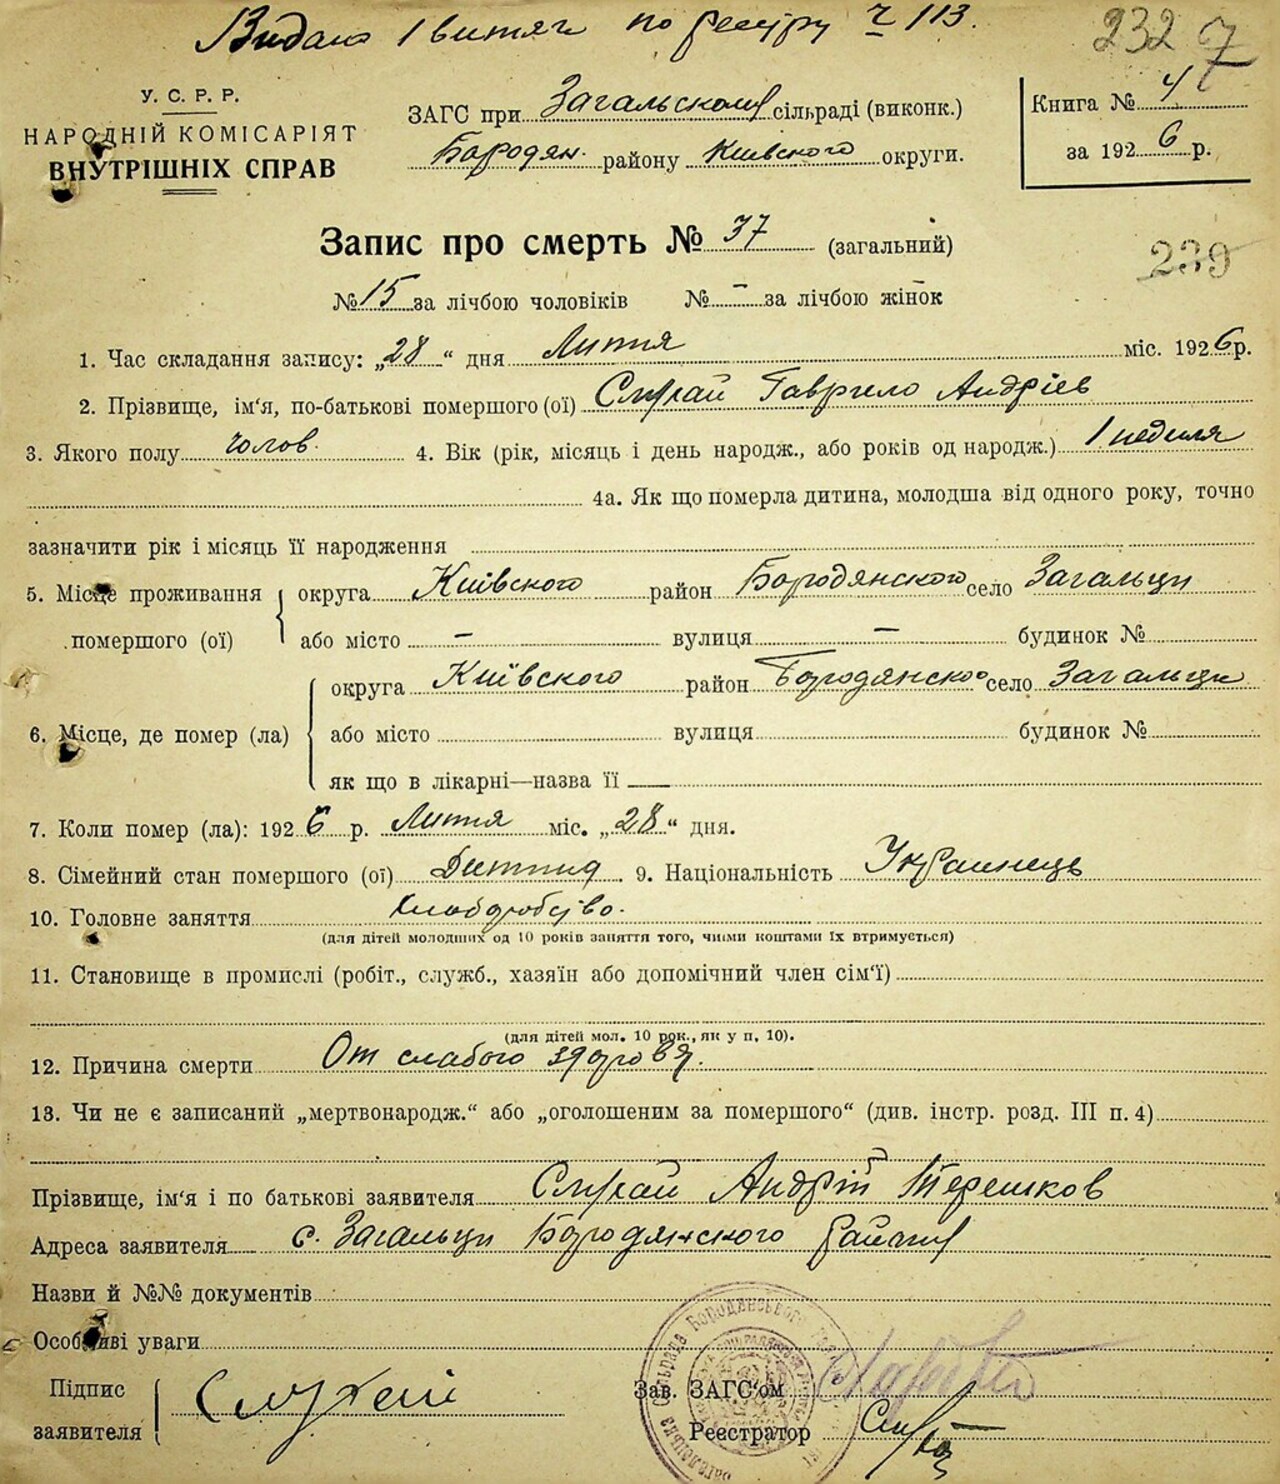 Видано 1 витяг по реєстру ч 113.
232 7
У. С. Р. Р.
НАРОДНІЙ КОМІСАРІЯТ
ВНУТРІШНІХ СПРАВ
ЗАГС при Загальском сільраді (виконк.)
Бородян. району Київского округи.
Книга № 4
за 1926 р.
Запис про смерть № 37 (загальний)
239
№ 15 за лічбою чоловіків № - за лічбою жінок
1. Час складання запису: „28“ дня Липня міс. 1926 р.
2. Прізвище, ім‘я, по-батькові помершого (ої) Гаврило Андріев
3. Якого полу чолов. 4. Вік (рік, місяць і день народж., або років од народж.) 1 неділя
4а. Як що померла дитина, молодша від одного року, точно
зазначити рік і місяць її народження
5. Місце проживання помершого (ої) округа Київского район Бородянского село Загальци
або місто - вулиця - будинок №
6. Місце, де помер (ла) округа Київского район Бородянского село Загальци
або місто вулиця будинок №
як що в лікарні—назва її
7. Коли помер (ла): 1926 р. Липня міс. „28“ дня.
8. Сімейний стан помершого (ої) Дитина 9. Національність Украинець
10. Головне заняття
(для дітей молодших од 10 років заняття того, чиїми коштами їх втримується)
11. Становище в промислі (робіт., служб., хазяїн або допомічний член сім‘ї)
(для дітей мол. 10 рок., як у п. 10).
12. Причина смерти От слабого здоровя.
13. Чи не є записаний „мертвонародж.“ або „оголошеним за помершого“ (див. інстр. розд. III п. 4)
Прізвище, ім‘я і по батькові заявителя Андрій Терешков
Адреса заявителя с. Загальци Бородянского району
Назви й №№ документів
Особливі уваги
Підпис заявителя
Зав. ЗАГС‘ом
Реєстратор